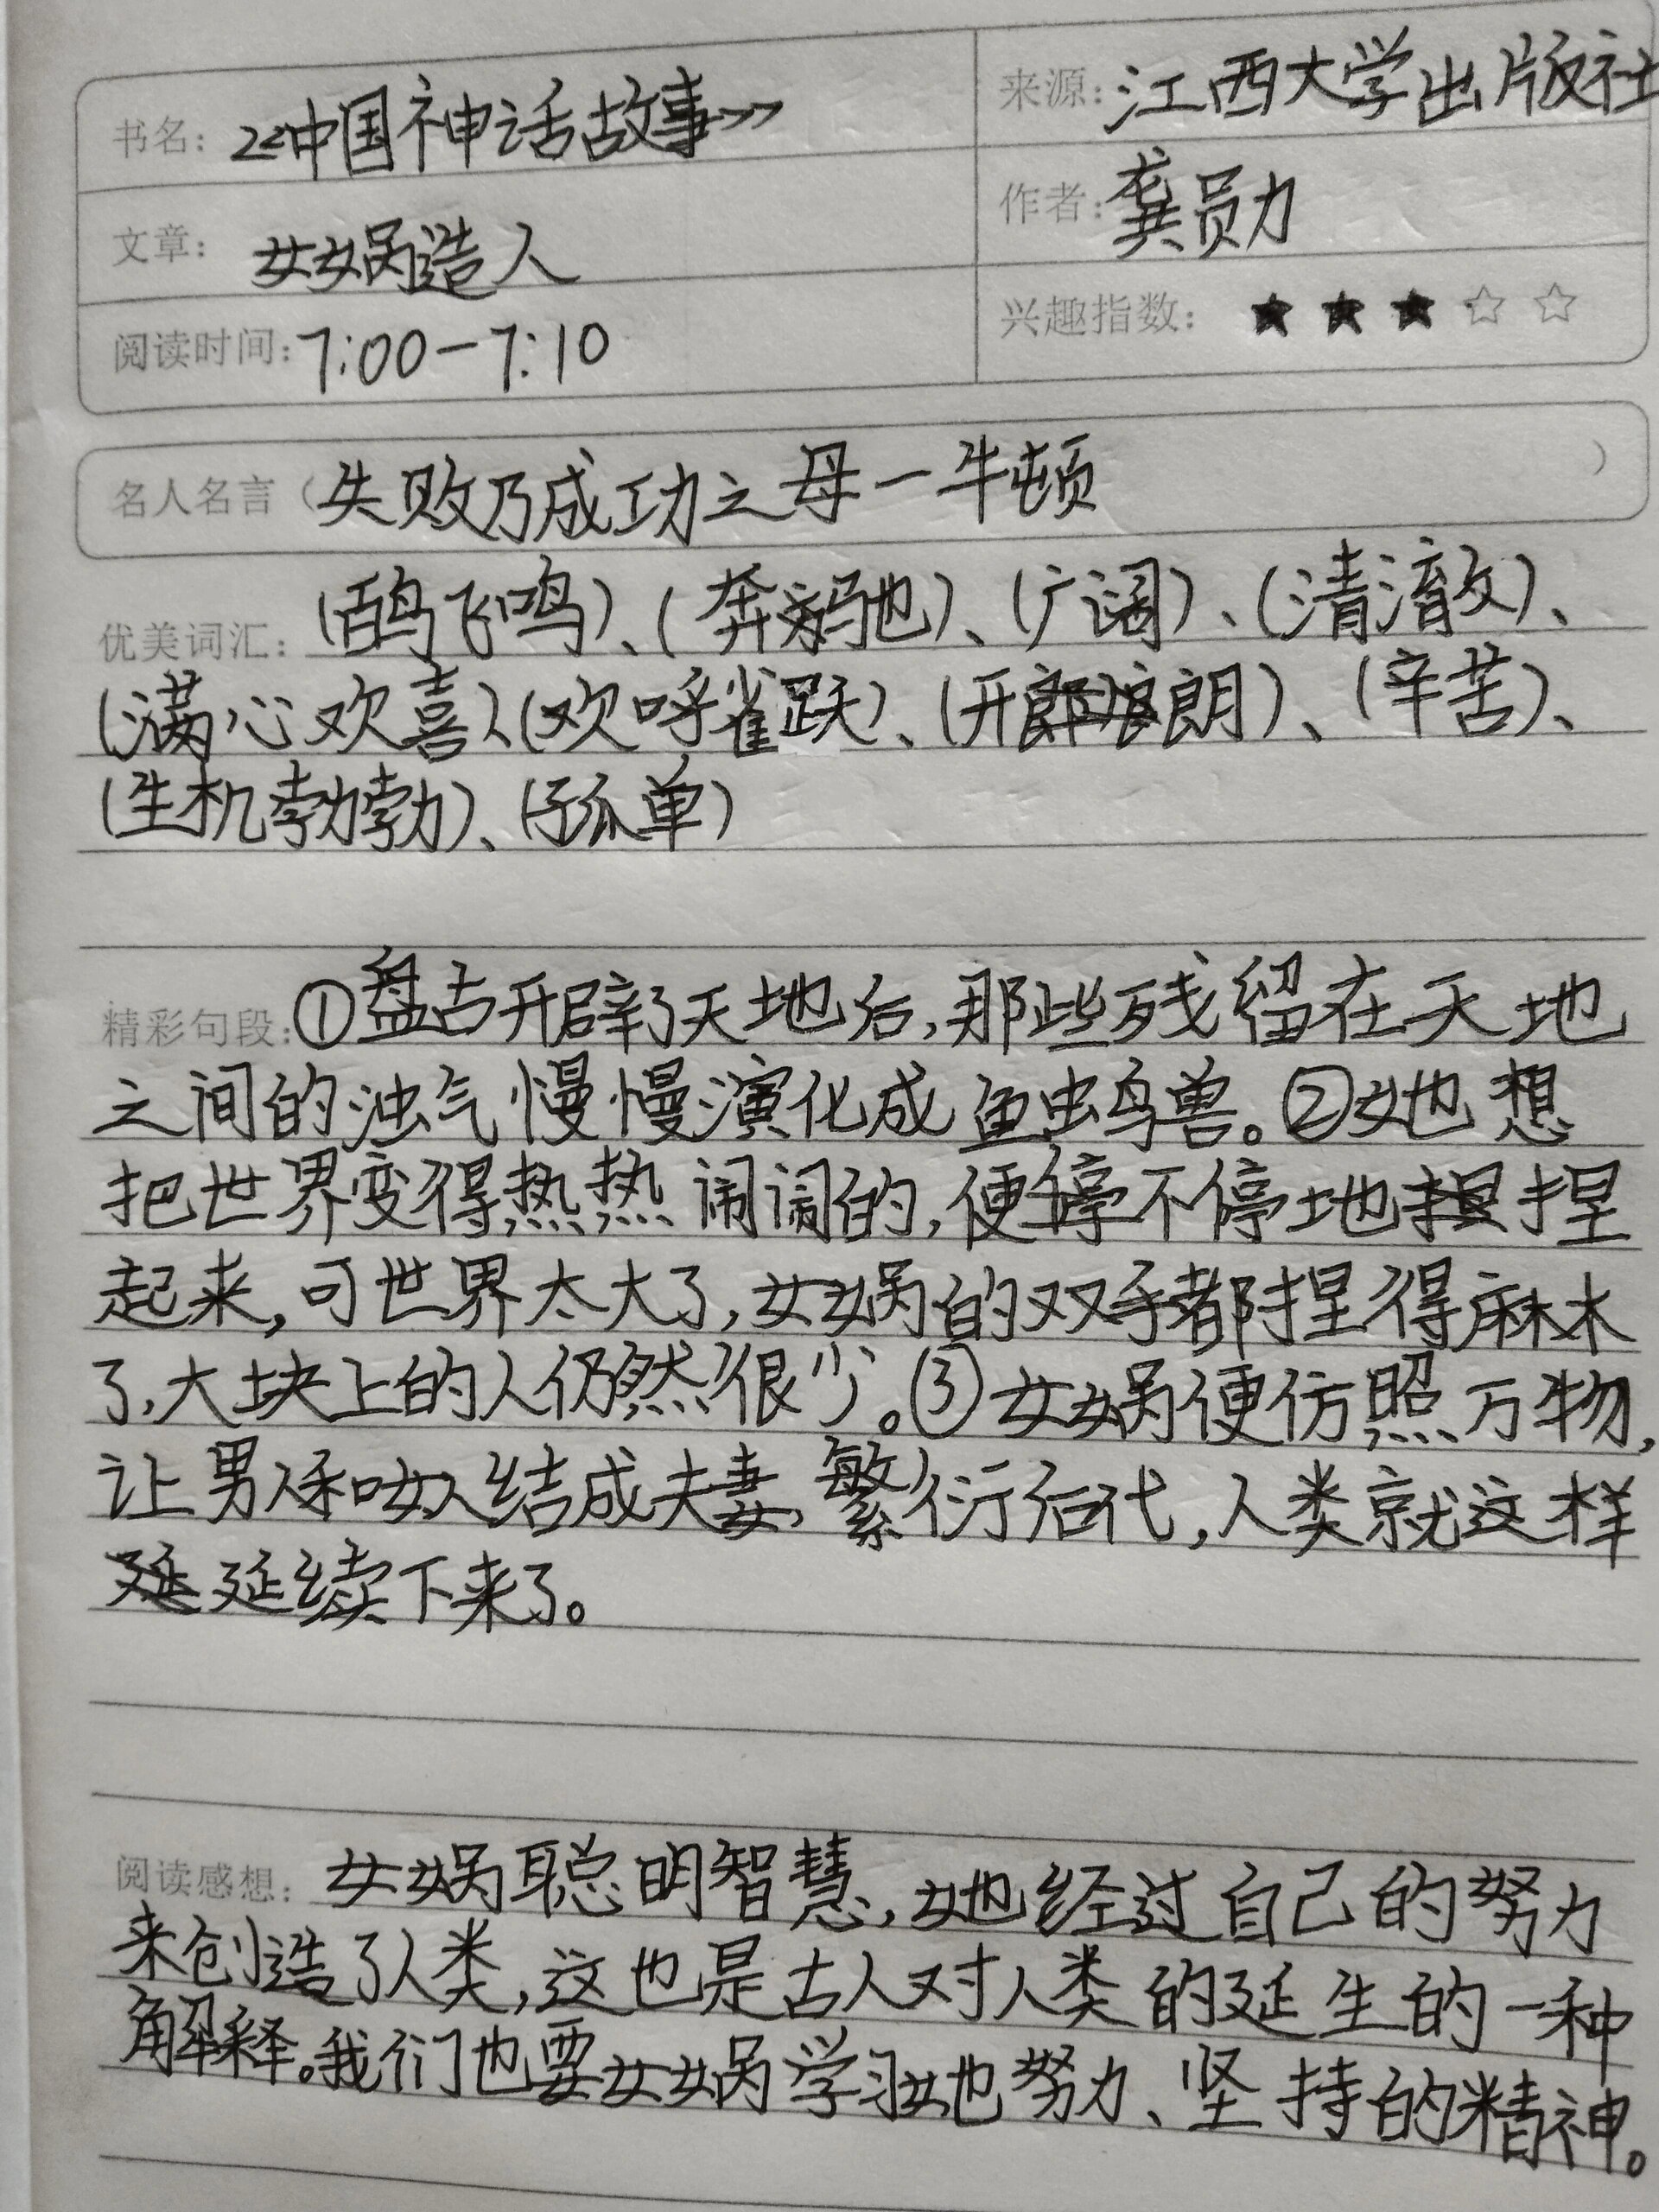 书名：《中国神话故事》
来源：江西大学出版社
文章：女娲造人
作者：龚员力
阅读时间：7:00-7:10
兴趣指数：★★★☆☆
名人名言（失败乃成功之母一牛顿）
优美词汇：（百鸟飞鸣）、（奔驰）、（广阔）、（清澈）、
（满心欢喜）、（欢呼雀跃）、（开朗）、（辛苦）、
（生机勃勃）、（孤单）
精彩句段：①盘古开辟了天地后，那些残留在天地
之间的浊气慢慢演化成鱼虫鸟兽。②她想
把世界变得热热闹闹的，便不停地捏
起来，可世界太大了，女娲的双手都捏得麻木
了，大块上的人仍然很少。③女娲便仿照万物，
让男人和女人结成夫妻，繁衍后代，人类就这样
延续下来了。
阅读感想：女娲聪明智慧，她经过自己的努力
来创造了人类，这也是古人对人类的延生的一种
解释。我们也要女娲学习她努力、坚持的精神。